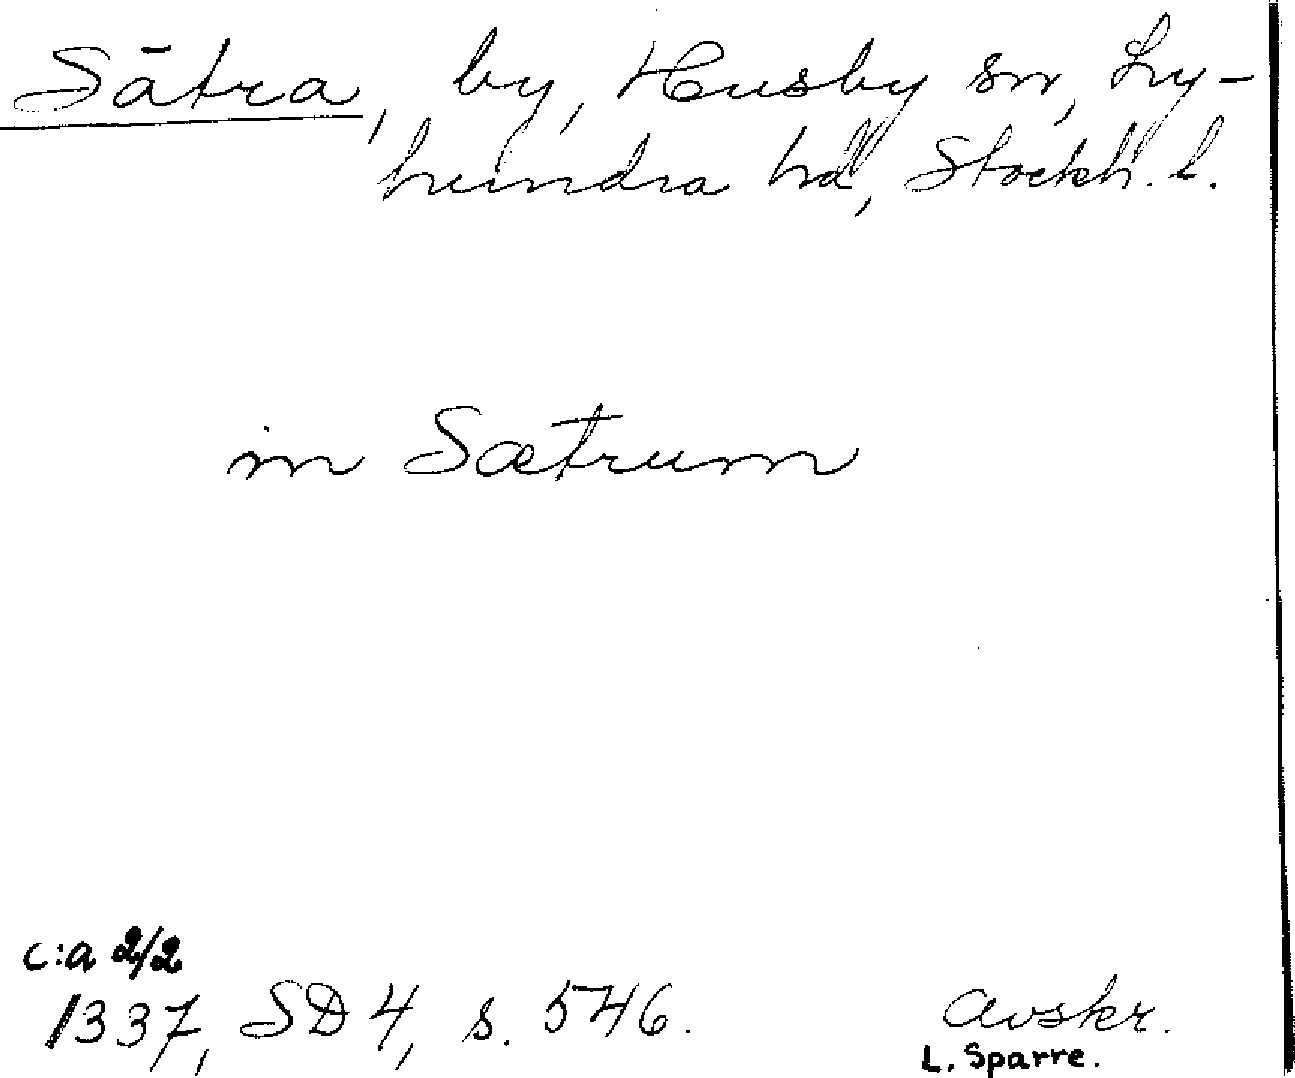 Sätra, by, Husby sn, Ly-
hundra hd, Stockh. l.
in Sætrum
c:a 2/2
1337, SD 4, s. 546.
Avskr.
L. Sparre.